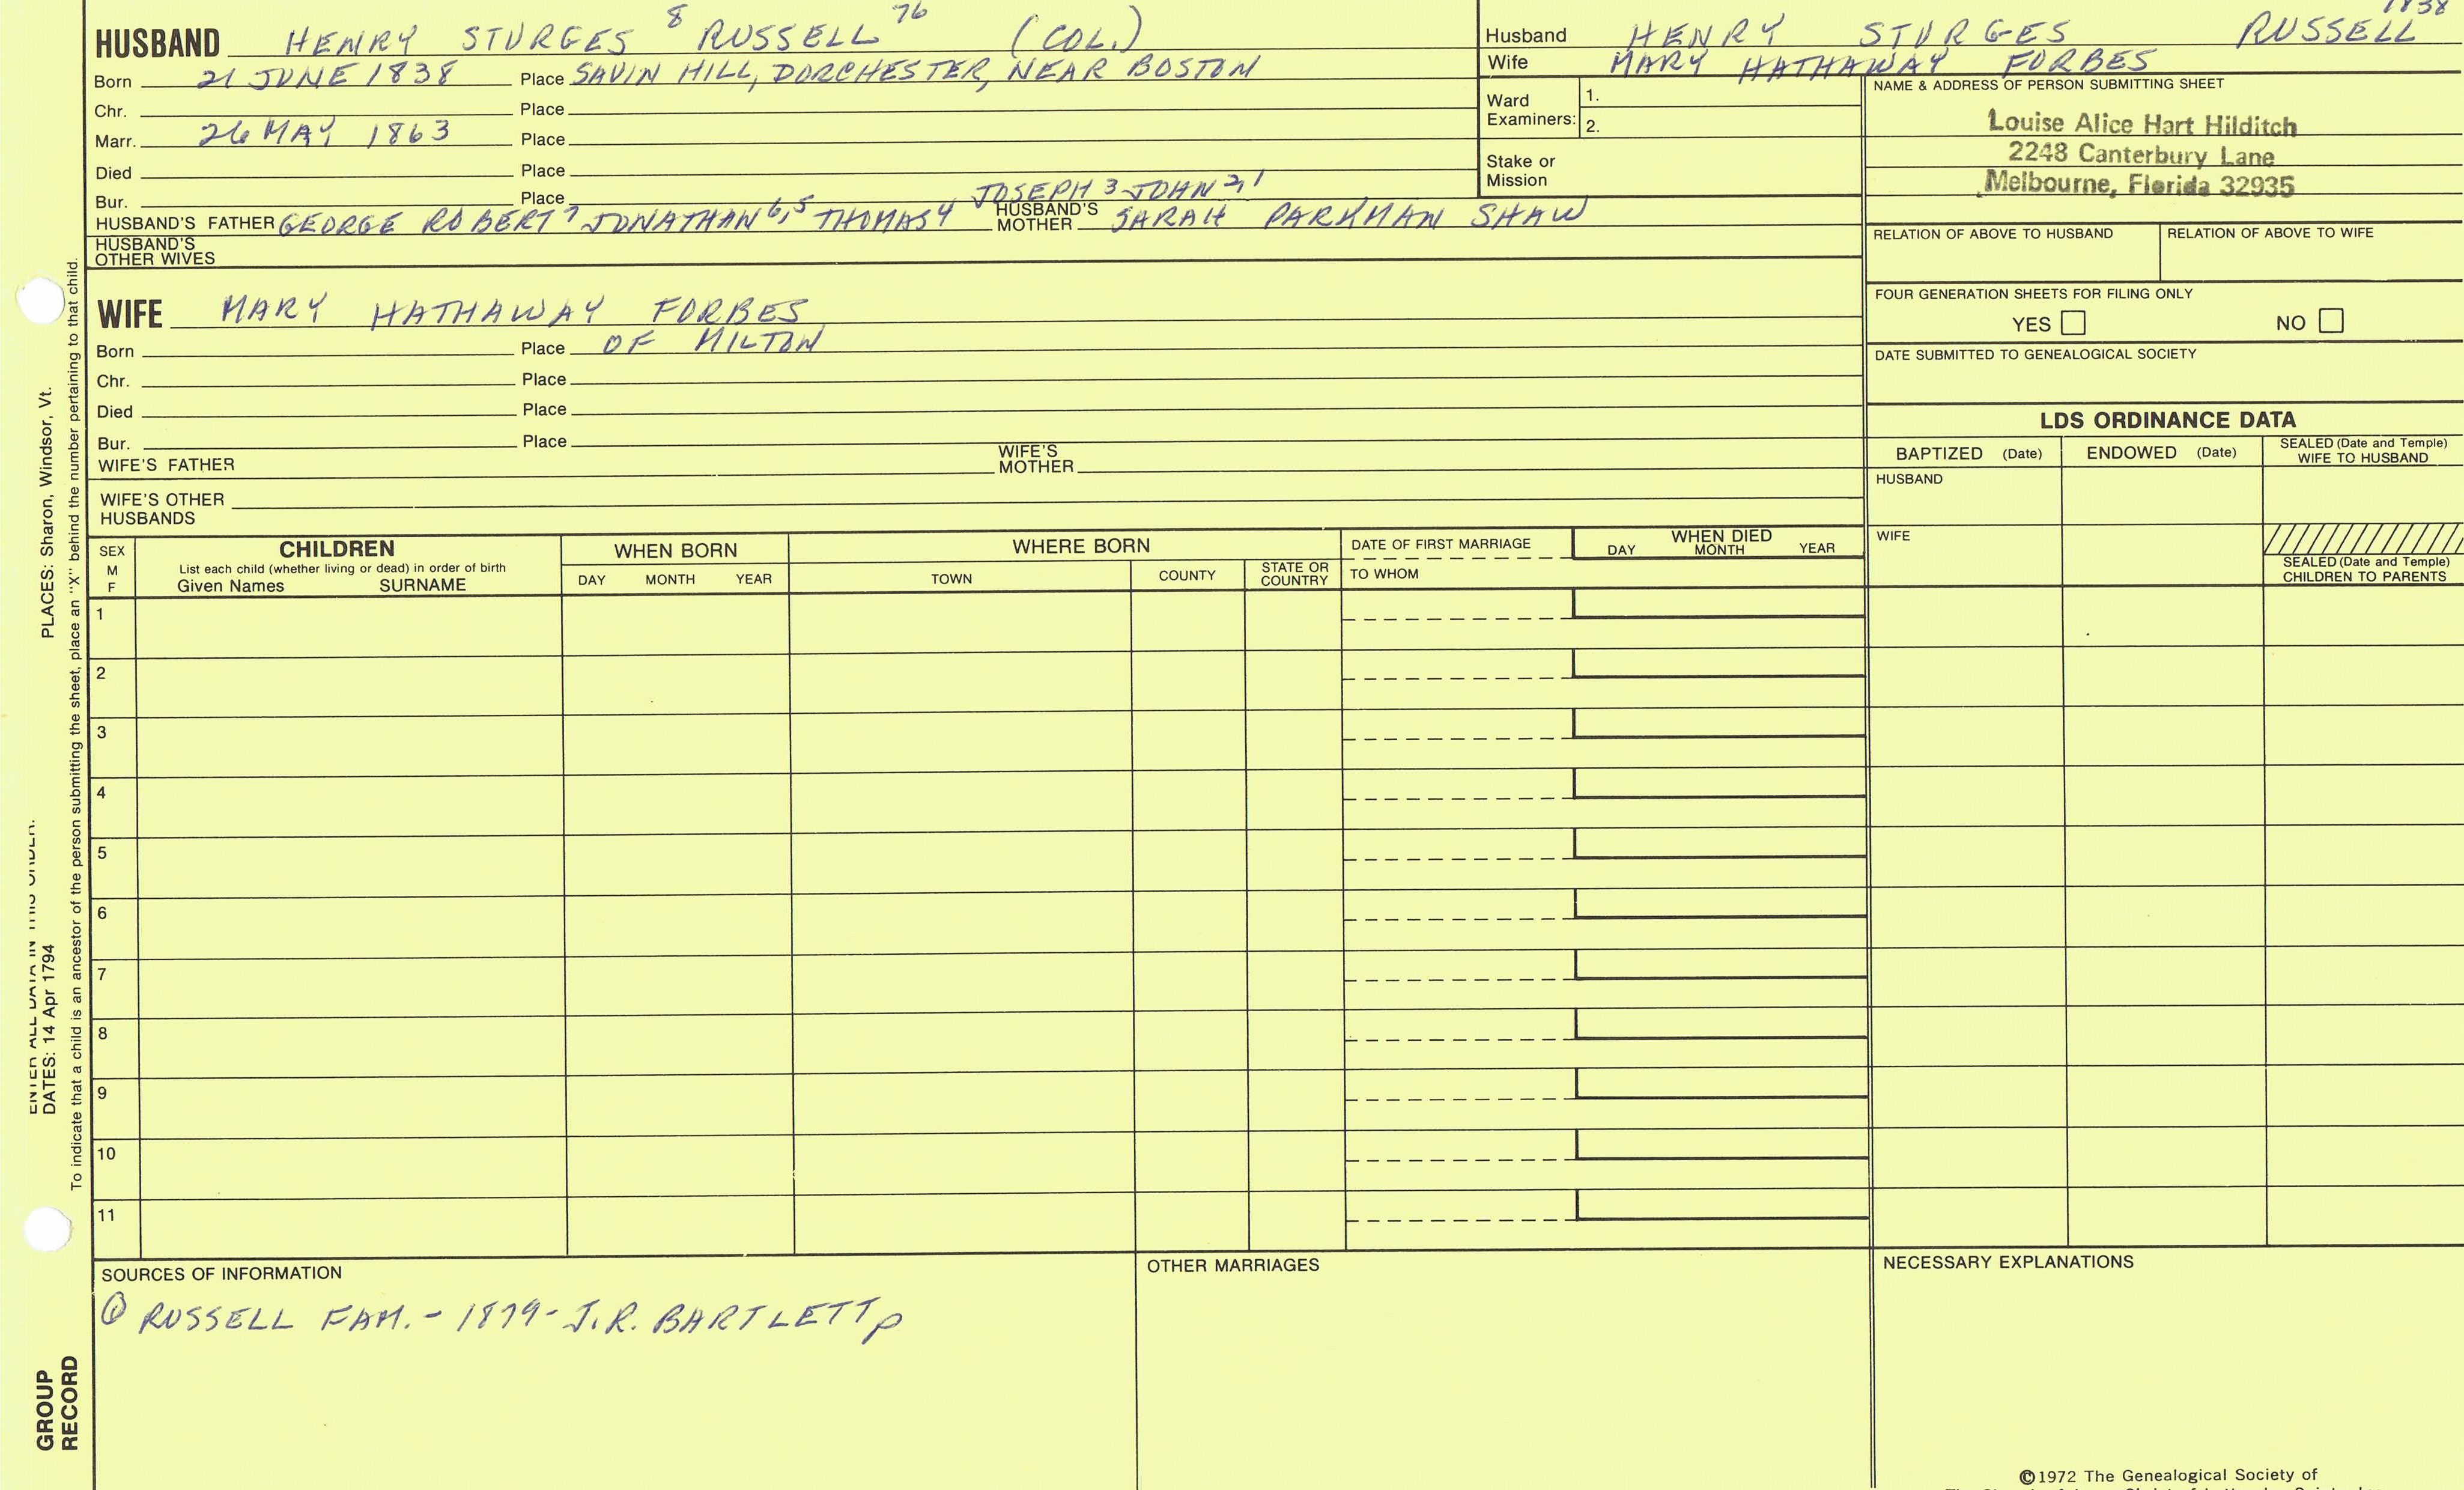 HUSBAND HENRY STURGES 8 RUSSELL 76 (COL.)
Born 21 JUNE 1838 Place SAVIN HILL, DORCHESTER, NEAR BOSTON
Chr. Place
Marr. 26 MAY 1863 Place
Died Place
Bur. Place JOSEPH 3 JOHN 2,1
HUSBAND'S FATHER GEORGE ROBERT 7 JONATHAN 6,5 THOMAS 4 HUSBAND'S MOTHER SARAH PARKMAN SHAW
HUSBAND'S OTHER WIVES
WIFE MARY HATHAWAY FORBES
Born Place OF MILTON
Chr. Place
Died Place
Bur. Place
WIFE'S FATHER WIFE'S MOTHER
WIFE'S OTHER HUSBANDS
1838
Husband HENRY STURGES RUSSELL
Wife MARY HATHAWAY FORBES
Ward Examiners: 1.
2.
Stake or Mission
NAME & ADDRESS OF PERSON SUBMITTING SHEET
Louise Alice Hart Hilditch
2248 Canterbury Lane
Melbourne, Florida 32935
RELATION OF ABOVE TO HUSBAND RELATION OF ABOVE TO WIFE
FOUR GENERATION SHEETS FOR FILING ONLY
YES NO
DATE SUBMITTED TO GENEALOGICAL SOCIETY
LDS ORDINANCE DATA
BAPTIZED (Date) ENDOWED (Date) SEALED (Date and Temple) WIFE TO HUSBAND
HUSBAND
WIFE
SEALED (Date and Temple) CHILDREN TO PARENTS
SEX M F
CHILDREN
List each child (whether living or dead) in order of birth
Given Names SURNAME
WHEN BORN
DAY MONTH YEAR
WHERE BORN
TOWN COUNTY STATE OR COUNTRY
DATE OF FIRST MARRIAGE
TO WHOM
WHEN DIED
DAY MONTH YEAR
1
2
3
4
5
6
7
8
9
10
11
SOURCES OF INFORMATION
① RUSSELL FAM. - 1879 - J.R. BARTLETT p
OTHER MARRIAGES
NECESSARY EXPLANATIONS
©1972 The Genealogical Society of
ENTER ALL DATA IN THIS ORDER:
DATES: 14 Apr 1794 PLACES: Sharon, Windsor, Vt.
To indicate that a child is an ancestor of the person submitting the sheet, place an "X" behind the number pertaining to that child.
GROUP
RECORD